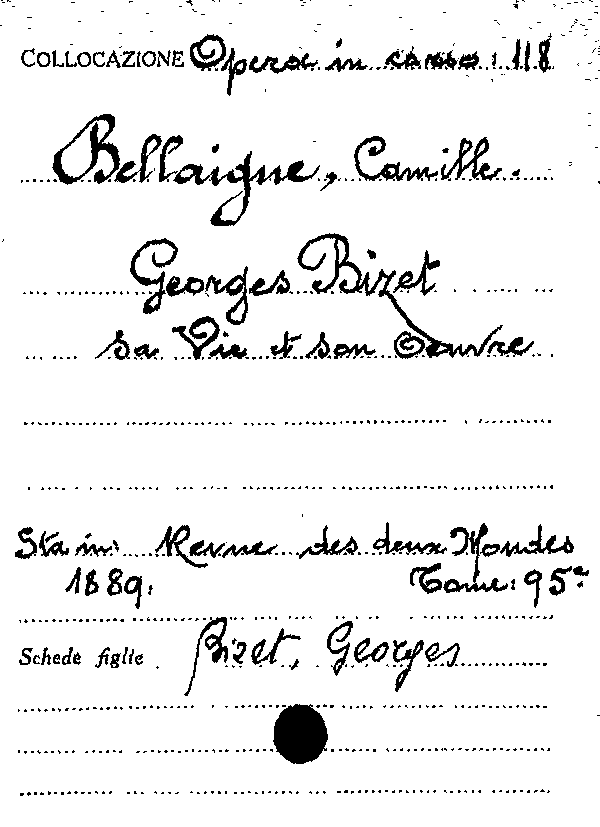 COLLOCAZIONE Opera in corso: 118
Bellaigne, Camille.
Georges Bizet
sa Vie et son Oeuvre
Sta in: Revue des deux Mondes
1889. Tome: 95e
Schede figlie Bizet, Georges